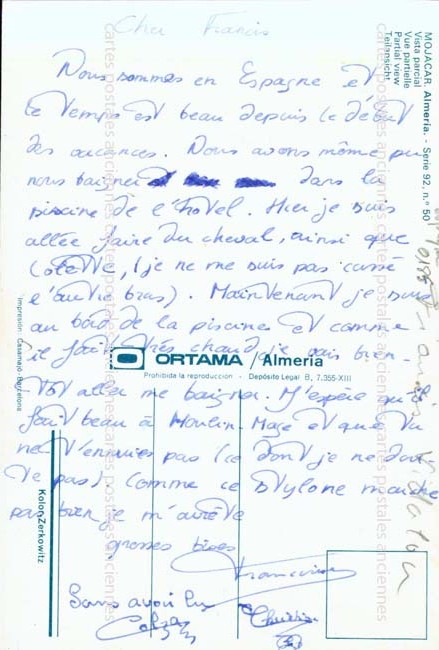 Cher Francis
Nous sommes en Espagne et
le temps est beau depuis le début
des vacances. Nous avons même pu
nous baigner dans la
piscine de l'hôtel. Hier je suis
allée faire du cheval, ainsi que
Colette, (je ne me suis pas cassé
l'autre bras). Maintenant je suis
au bord de la piscines et comme
il fait très chaud je vais bien-
tôt aller me baigner. J'espère qu'il
fait beau à Moulin-Mage et que tu
ne t'ennuies pas (ce dont je ne dou-
te pas). Comme ce stylone marche
pas bien je m'arrête
grosses bises
Francine
Sans avoir lu
Christian
MOJACAR. Almería. - Serie 92, n.º 50
Vista parcial
Vue partielle
Partial view
Teilansicht
ORTAMA / Almería
Prohibida la reproducción - Depósito Legal B. 7.355-XIII
Impresión: Casamajó - Barcelona
Kolon/Zerkowitz
cartes postales anciennes
cartes postales anciennes
cartes postales anciennes
cartes postales anciennes